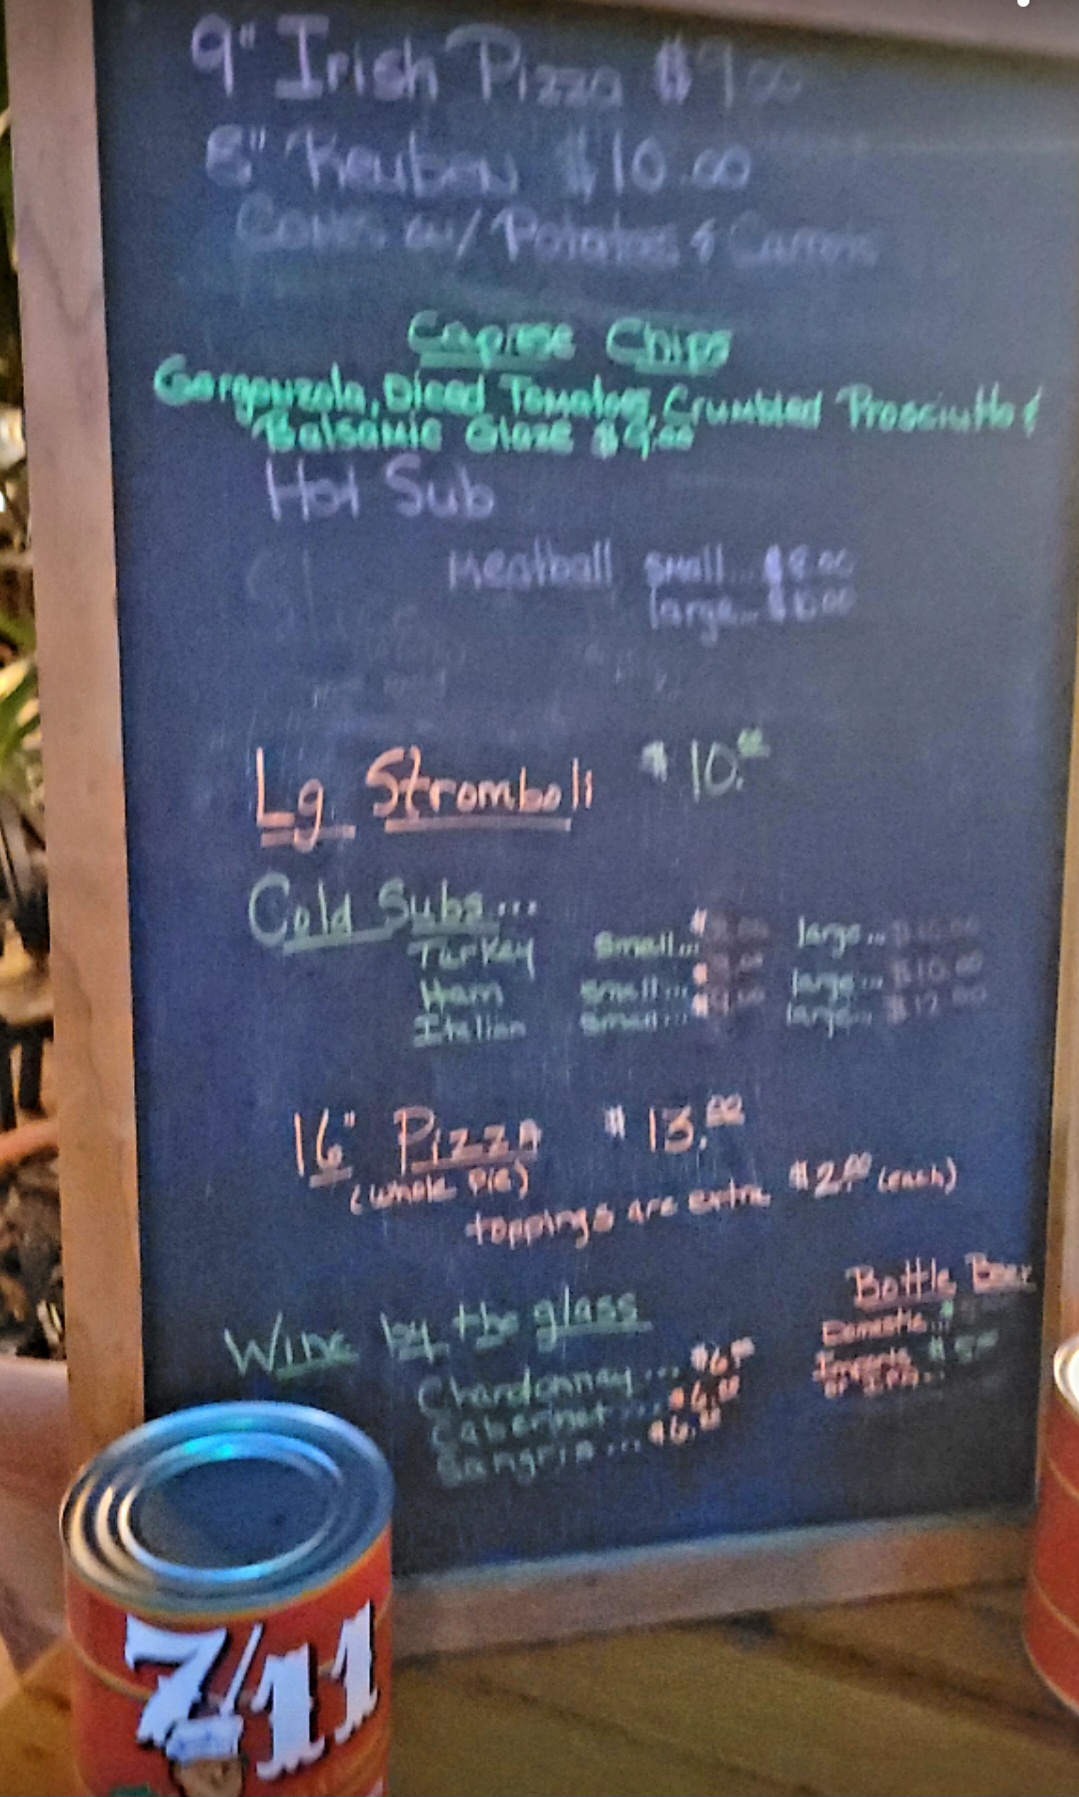 9" Irish Pizza $9.00
8" Reuben $10.00
Comes w/ Potatoes & Carrots
Caprese Chips
Gorgonzola, Diced Tomatoes, Crumbled Prosciutto &
Balsamic Glaze $9.00
Hot Sub
Meatball small... $8.00
large...
Lg Stromboli $10.00
Cold Subs...
Turkey small... large...
Ham small... large... $10.00
Italian small... $9.00 large... $12.00
16" Pizza $13.00
(whole pie)
toppings are extra $2.00 (each)
Wine by the glass
Chardonnay... $6.00
Caberinet... $6.00
Sangria... $6.00
Bottle Beer
Domestic...
Imports $5.00
or IPA...
7/11